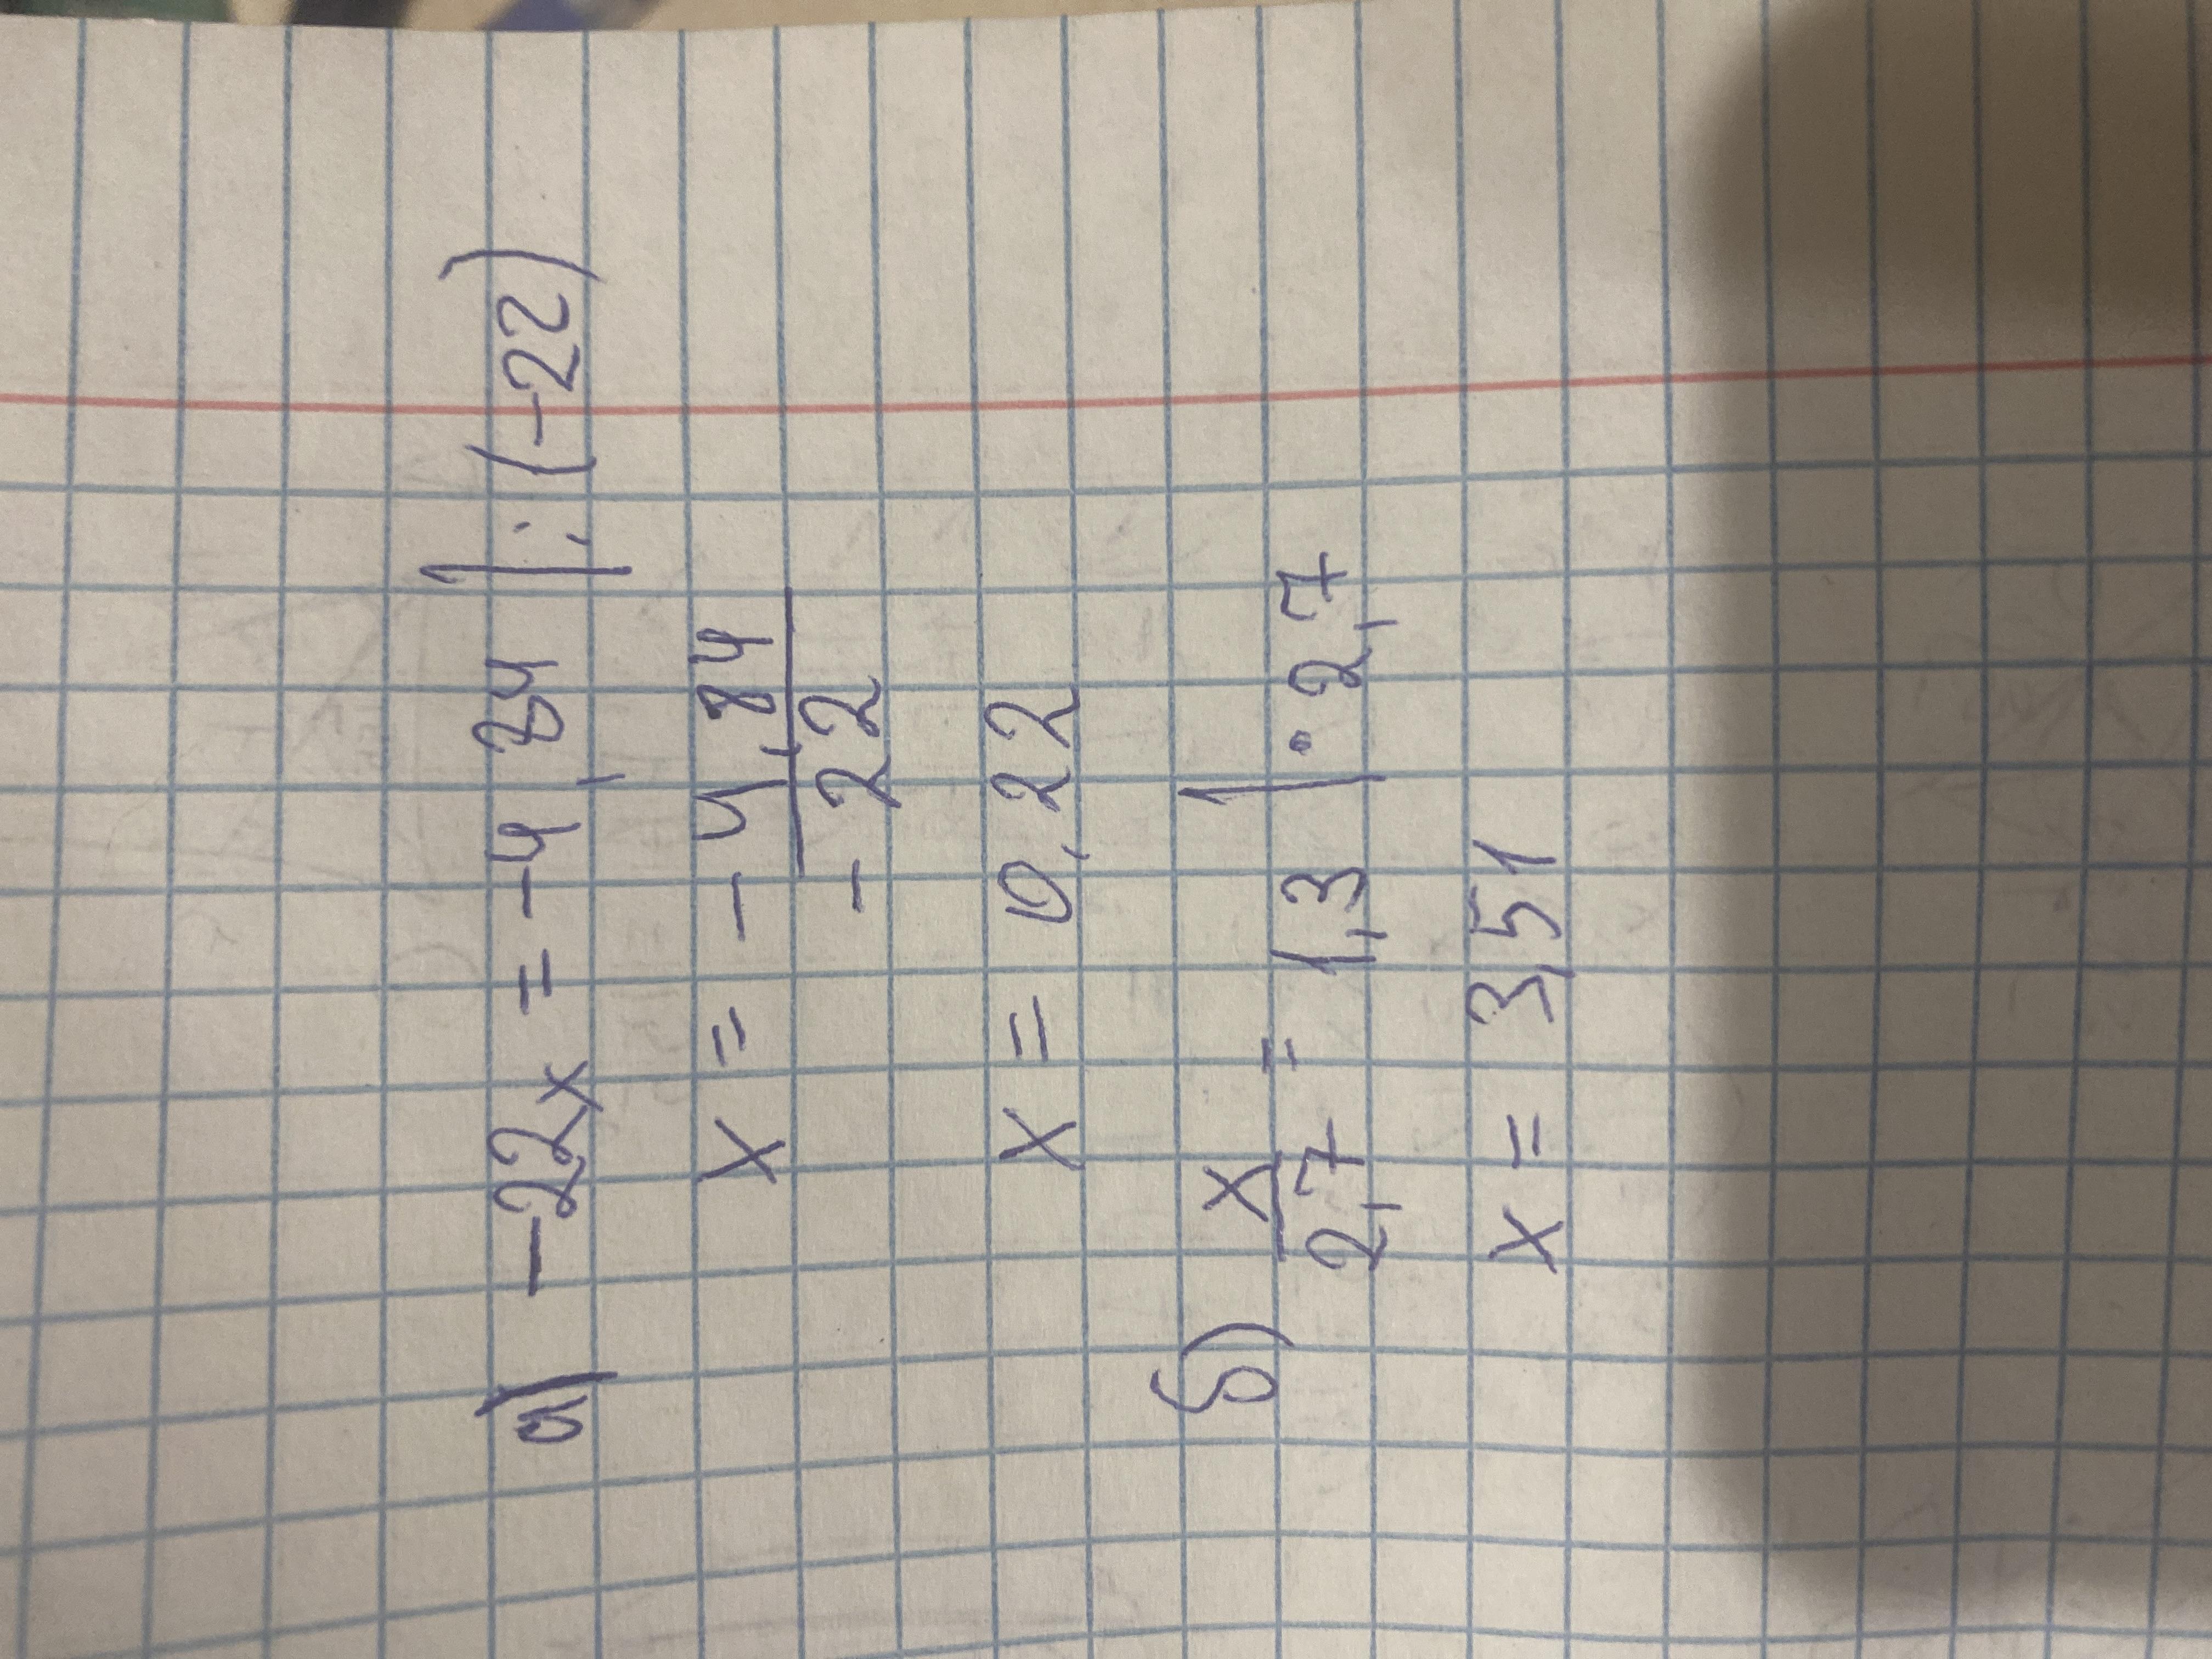 а) -22x = -4,84 | : (-22)
x = -4,84
-22
x = 0,22
б) x
2,7 = 1,3 | • 2,7
x = 3,51